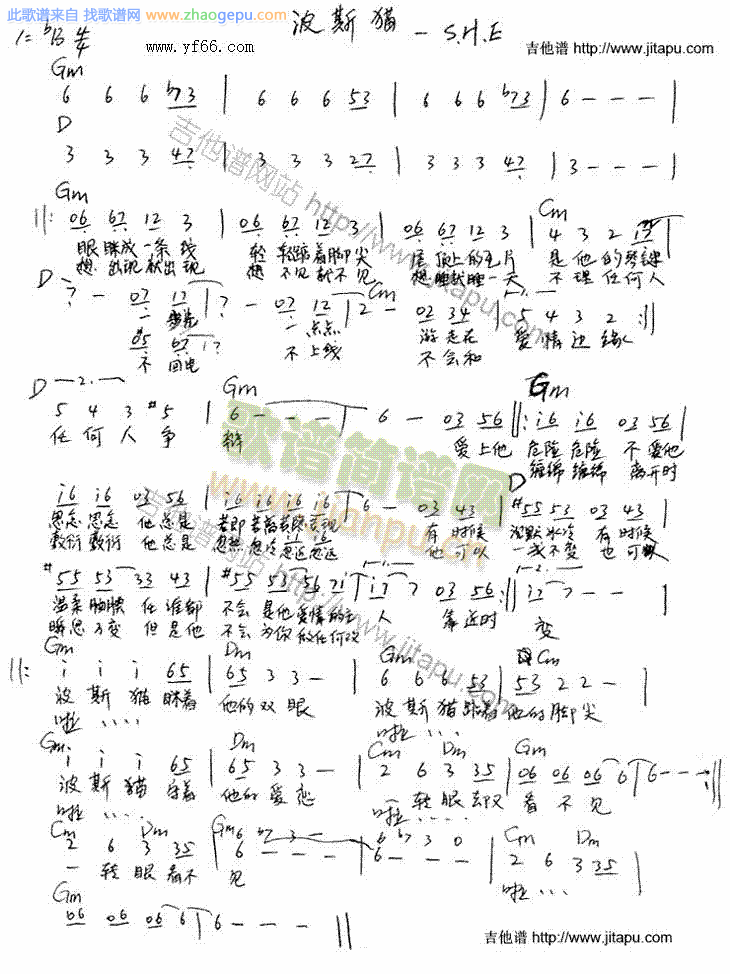 此歌谱来自 找歌谱网
www.zhaogepu.com
波斯猫 — S.H.E
1=♭B 4/4
www.yf66.com
吉他谱 http://www.jitapu.com
Gm
6 6 6 ♭73 | 6 6 6 53 | 6 6 6 ♭73 | 6 - - - |
D
3 3 3 47 | 3 3 3 27 | 3 3 3 47 | 3 - - - |
Gm Cm
||: 06 67 12 3 | 06 67 12 3 | 06 67 12 3 | 4 3 2 17
眼眯成一条线 轻轻踮着脚尖 尾 上的毛片 是他的琴键
想出现就出现 想不见就不见 想睡就睡一天 不理任何人
D Cm
7 - 07 12 | 7 - 07 12 | 2 - 02 34 | 5 4 3 2 :||
一步步 一点点 游走在 爱情边缘
05 67 17
不回电 不上线 不会和
D 2. Gm Gm
5 4 3 #5 | 6 - - - | 6 - 03 56 ||: i6 i6 03 56 |
任何人争 辩 爱上他 危险危险 不爱他
缠绵缠绵 离开时
D
i6 i6 03 56 | i6 i6 i6 i6 | 6 - 03 43 | #55 53 03 43 |
思念思念 他总是 若即若离若隐若现 有时候 沉默冰冷 有时候
敷衍敷衍 他总是 忽热忽冷忽近忽远 他可以 一成不变 也可以
#55 53 33 43 | #55 53 56 7i | i7 7 03 56 :|| i7 7 - - |
温柔腼腆 任谁都 不会是他爱情的主 人 靠近时 变
瞬息万变 但是他 不会为你做任何改
Gm Dm Gm Cm
||: i i i 65 | 65 3 3 - | 6 6 6 53 | 53 2 2 - |
波斯猫眯着 他的双眼 波斯猫踮着 他的脚尖
啦.... 啦....
Gm Dm Cm Dm Gm
i i i 65 | 65 3 3 - | 2 6 3 35 | 06 06 06 6 | 6 - - - :||
波斯猫守着 他的爱恋 一转眼却又 看不见
啦.... 啦....
Cm Dm Gm Cm Dm
2 6 3 35 | 6 - - - | 6 - - - | 2 6 3 35 |
6 ♭7 3 - 6 ♭7 3 0
一转眼看不 见 啦...
Gm
06 06 06 6 | 6 - - - ||
吉他谱网站 http://www.jitapu.com
歌谱简谱网
www.jianpu.cn
吉他谱网站 http://www.jitapu.com
吉他谱 http://www.jitapu.com